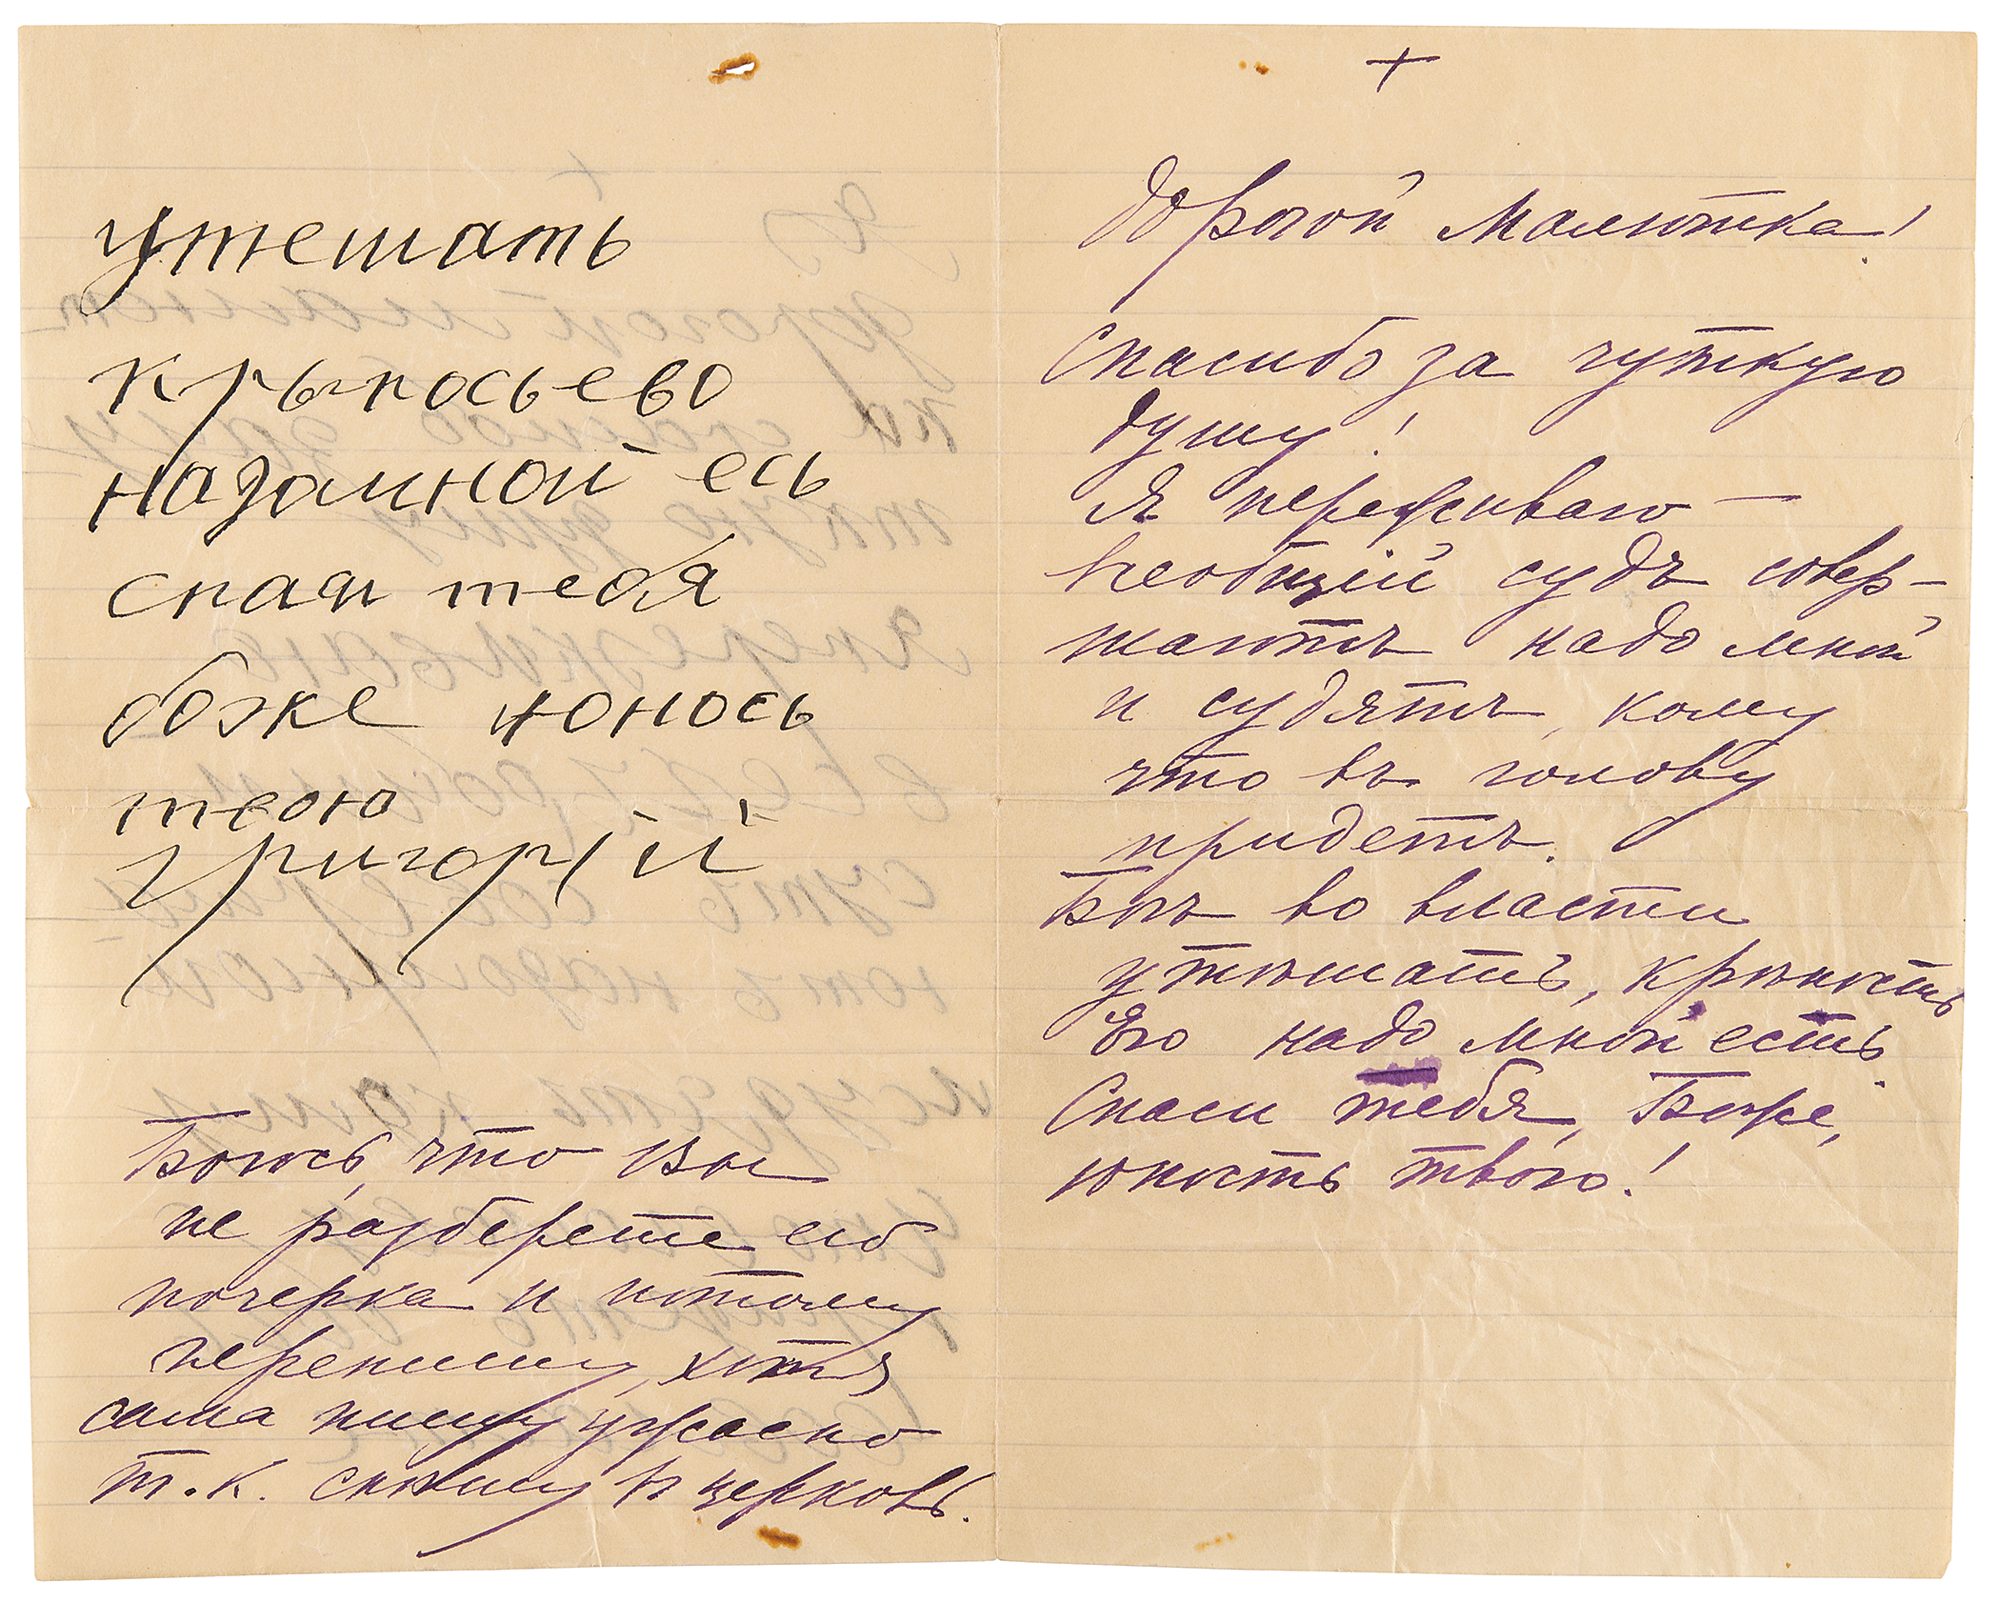 утешать
крьпосьево
надомной есь
спаи тебя
боже юнось
твою
григорӀй
Боюсь, что Вы
не разберете его
почерка и потому
перепишу, хотя
сама пишу ужасно
т.к. спѣшу въ церковь.
+
Дорогой Малютка!
Спасибо за чуткую
душу!
Я переживаю —
Всеобщій судъ совер-
шаютъ надо мной
и судятъ, кому
что въ голову
придетъ.
Богъ во власти
утѣшать, крѣпость
Его надо мной есть.
Спаси тебя, Боже,
юность твою!